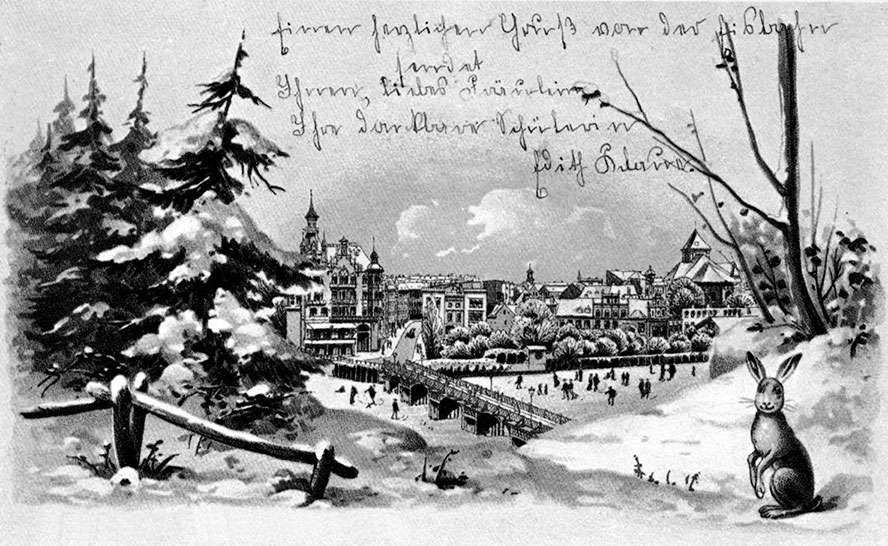 Einen herzlichen Gruß von der Eisbahn
sendet
Ihnen, liebes Fräulein
Ihre dankbare Schülerin
Edith